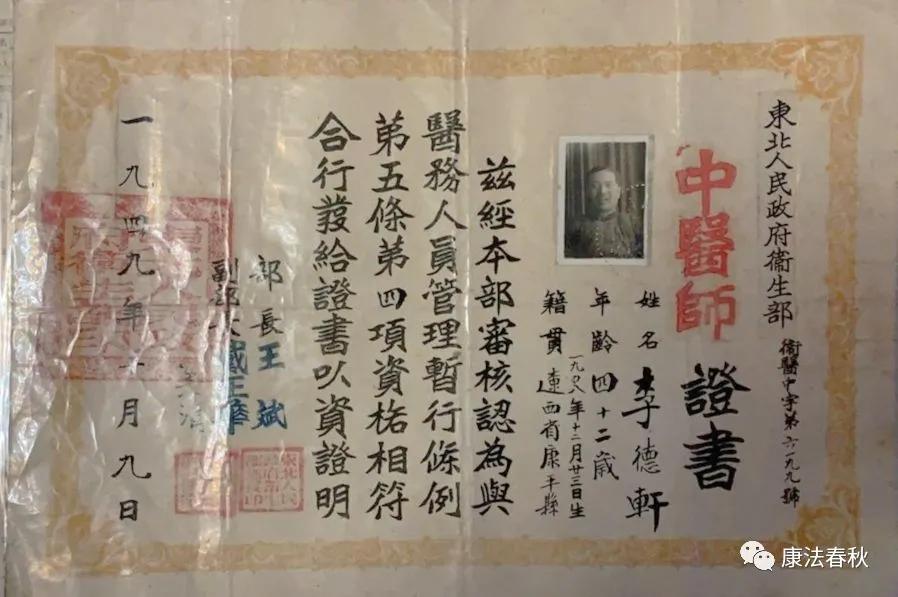 東北人民政府衛生部
衛醫中字第六一九九號
中醫師證書
姓名 李德軒
年齡 四十二歲
一九〇八年十二月廿三日生
籍貫 遼西省康平縣
茲經本部審核認為與
醫務人員管理暫行條例
第五條第四項資格相符
合行發給證書以資證明
部長 王斌
副部長 戴正華
一九四九年十月九日
康法春秋